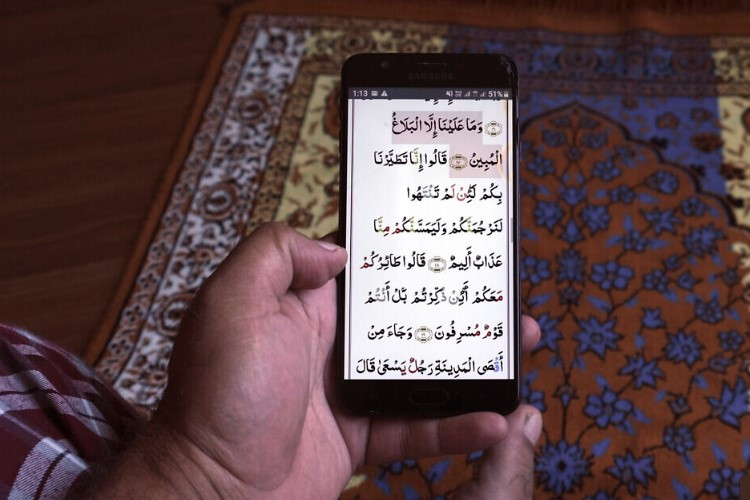 SAMSUNG
1:13 51%
وَمَا عَلَيْنَا إِلَّا الْبَلَاغُ
الْمُبِينُ ۝١٧ قَالُوا إِنَّا تَطَيَّرْنَا
بِكُمْ لَئِنْ لَمْ تَنْتَهُوا
لَنَرْجُمَنَّكُمْ وَلَيَمَسَّنَّكُمْ مِنَّا
عَذَابٌ أَلِيمٌ ۝١٨ قَالُوا طَائِرُكُمْ
مَعَكُمْ أَئِنْ ذُكِّرْتُمْ بَلْ أَنْتُمْ
قَوْمٌ مُسْرِفُونَ ۝١٩ وَجَاءَ مِنْ
أَقْصَى الْمَدِينَةِ رَجُلٌ يَسْعَىٰ قَالَ